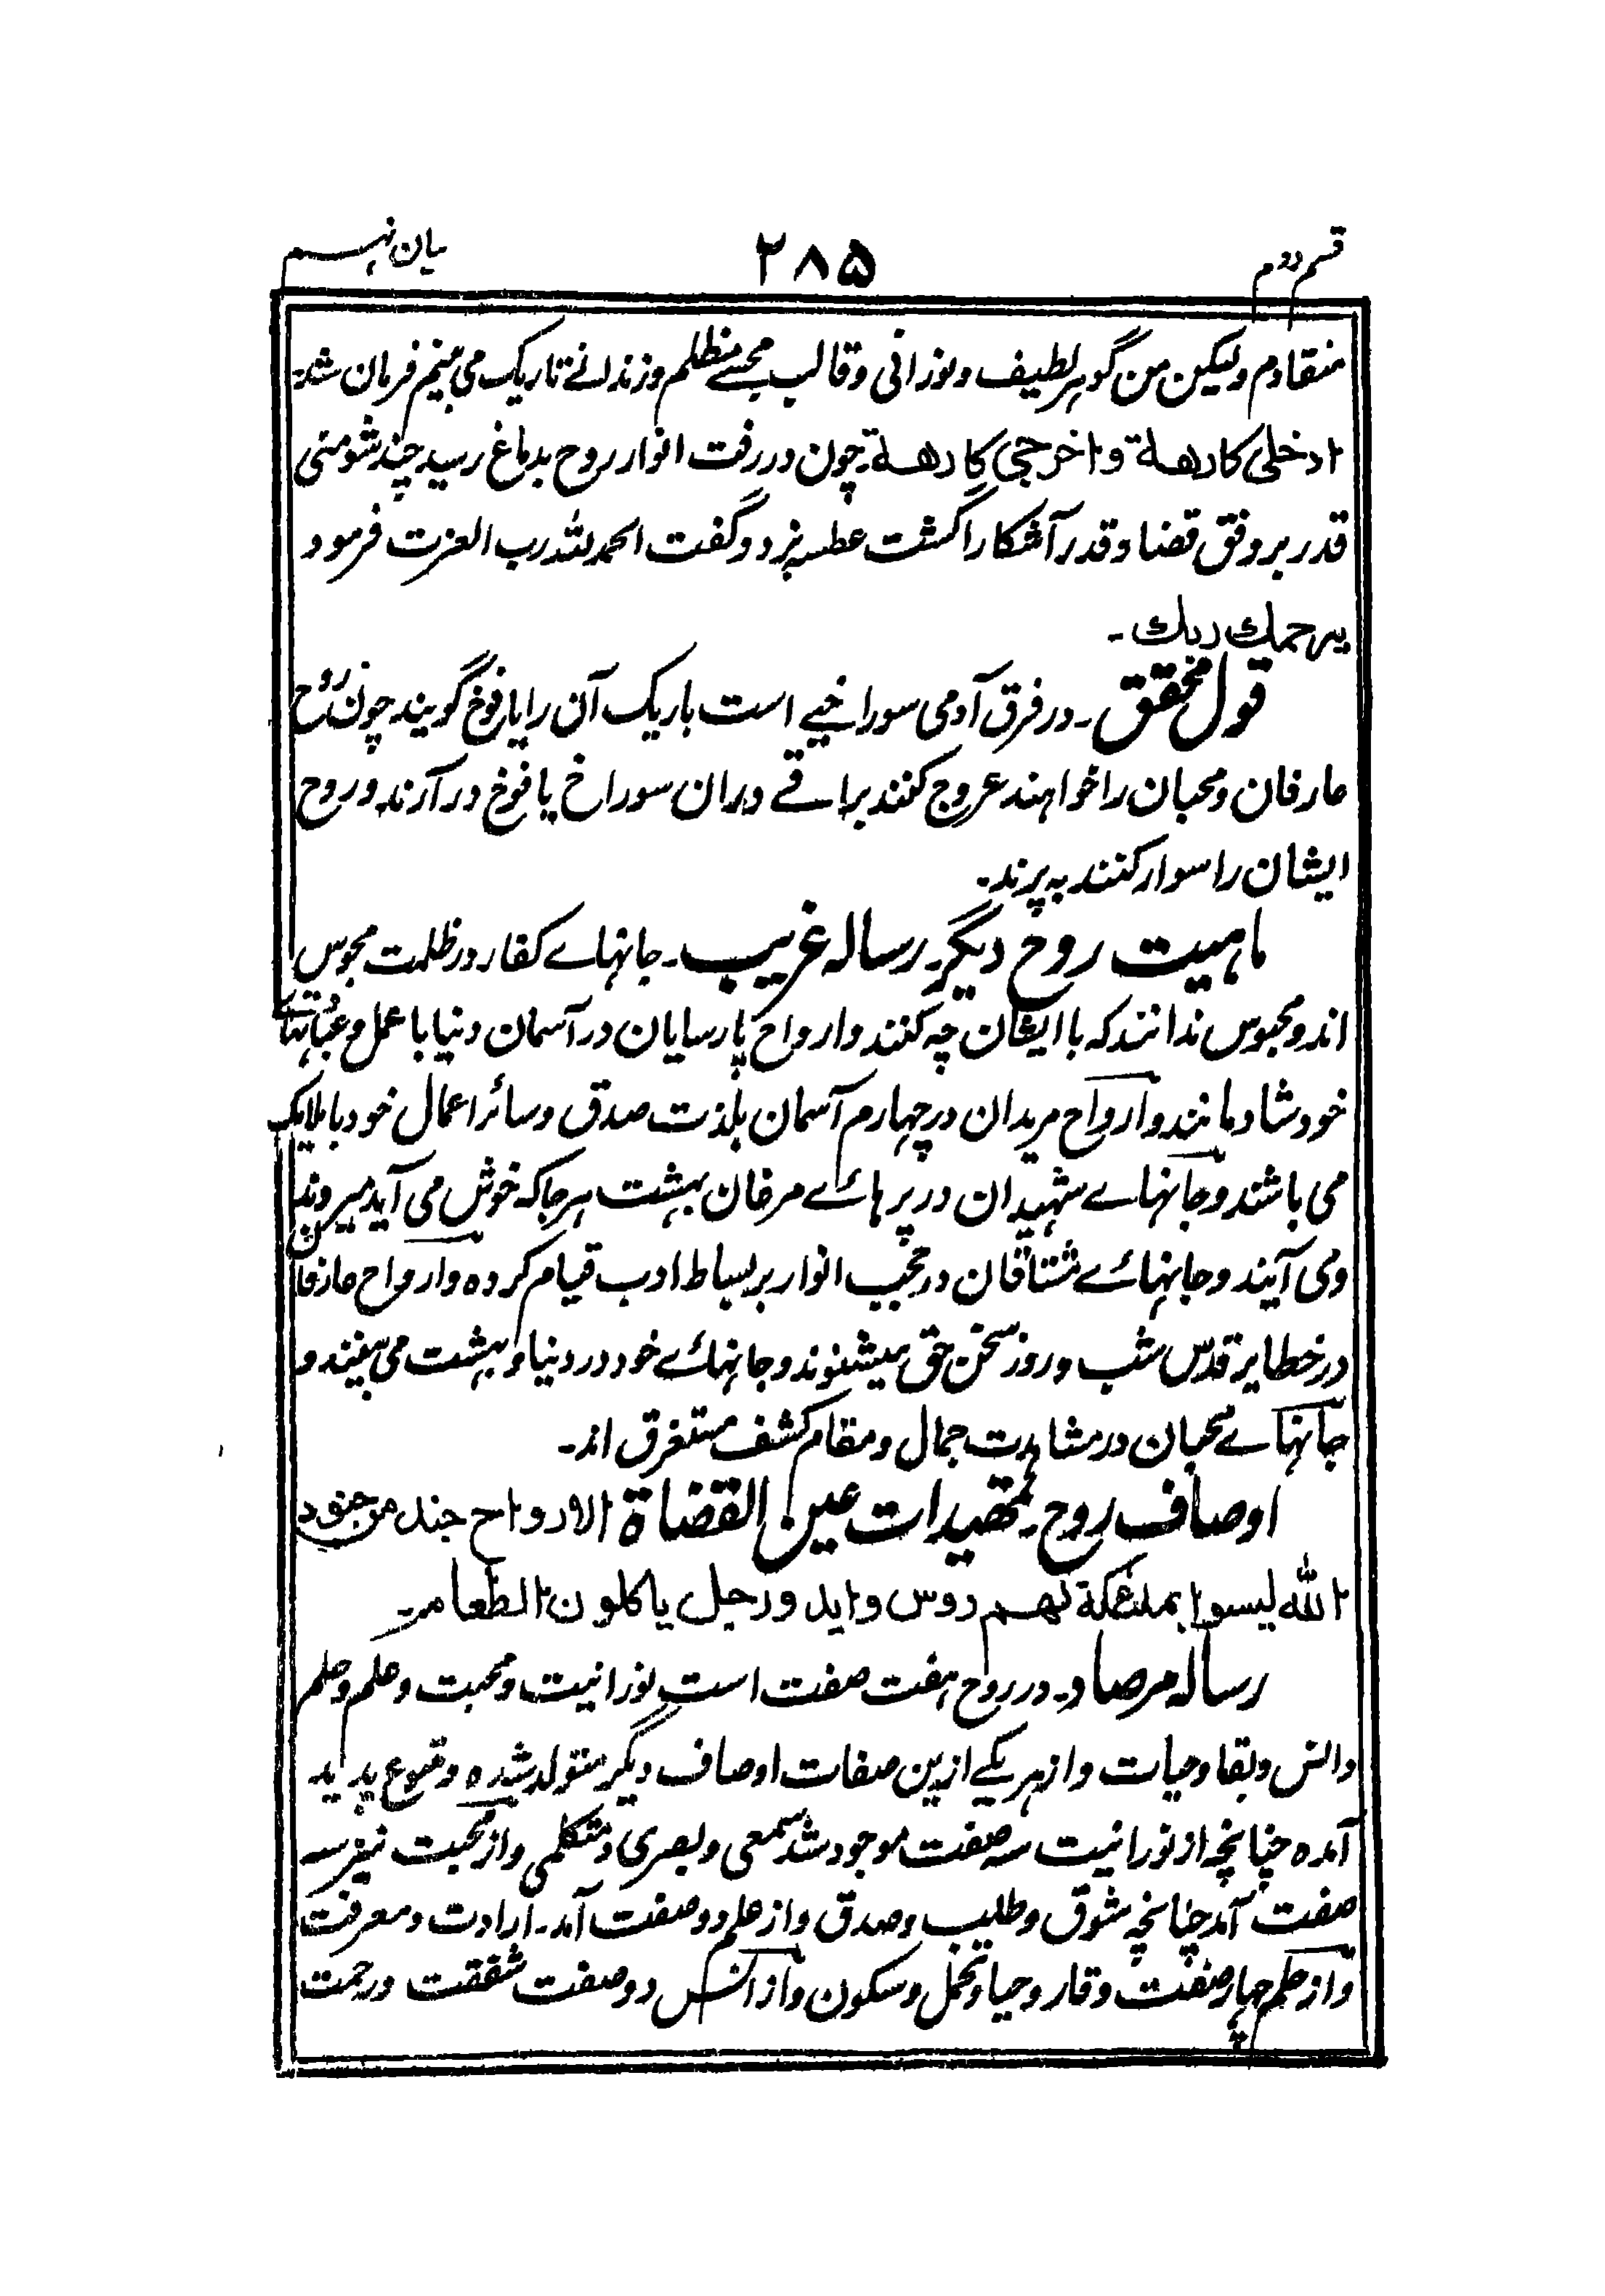 قسم دوم
۲۸۵
بیان نهم
منقادم ولیکن من گوهر لطیف و نورانی و قالب محبسے مظلم و زندانے تاریک می بینم فرمان شد۔
ادخلی کارهة واخرجی کارهة۔ چون در رفت انوار روح بدماغ رسید چند شومنی
قدر بر وفق قضا و قدر آشکارا گشت عطسه بزد و گفت الحمد لله رب العزت فرمود
یرحمك ربك۔
قول محقق۔ در فرق آدمی سوراخیے است باریک آن را یافوخ گویند چون روح
عارفان و محبان را خواهند عروج کنند براقے دران سوراخ یافوخ در آرند و روح
ایشان را سوار کنند به پرند۔
ماهیت روح دیگر۔ رساله غریب۔ جانهاے کفار در ظلمت محبوس
اند و محبوس ندانند که با ایشان چه کنند و ارواح پارسایان در آسمان دنیا با عمل و
خود شادمانند و ارواح مریدان در چهارم آسمان بلذت صدق و سائر اعمال خود با ملایک
می باشند و جانهاے شهیدان در پرهاے مرغان بهشت هر جا که خوش می آید میروند
و می آیند و جانهاے مشتاقان در حجب انوار بر بساط ادب قیام کرده و ارواح عارفان
در خطایر قدس شب و روز سخن حق میشنوند و جانهاے خود در دنیا و بهشت می بینند و
جانهاے محبان در مشاهدت جمال و مقام کشف مستغرق اند۔
اوصاف روح۔ تمهیدات عین القضاة الارواح جند من جنود
الله لیسوا بملئکة لهم روس واید ورجل یاکلون الطعام۔
رساله مرصاد۔ در روح هفت صفت است نورانیت و محبت و علم و حلم
و انس و بقا و حیات و از هر یکے ازین صفات اوصاف دیگر متولد شده وقوع پدید
آمده چنانچه از نورانیت سه صفت موجود شد سمعی و بصری و متکلمی و از محبت نیز سه
صفت آمد چنانچه شوق و طلب و صدق و از علم دو صفت آمد۔ ارادت و معرفت
و از حلم چهار صفت وقار و حیا و تحمل و سکون و از انس دو صفت شفقت و رحمت